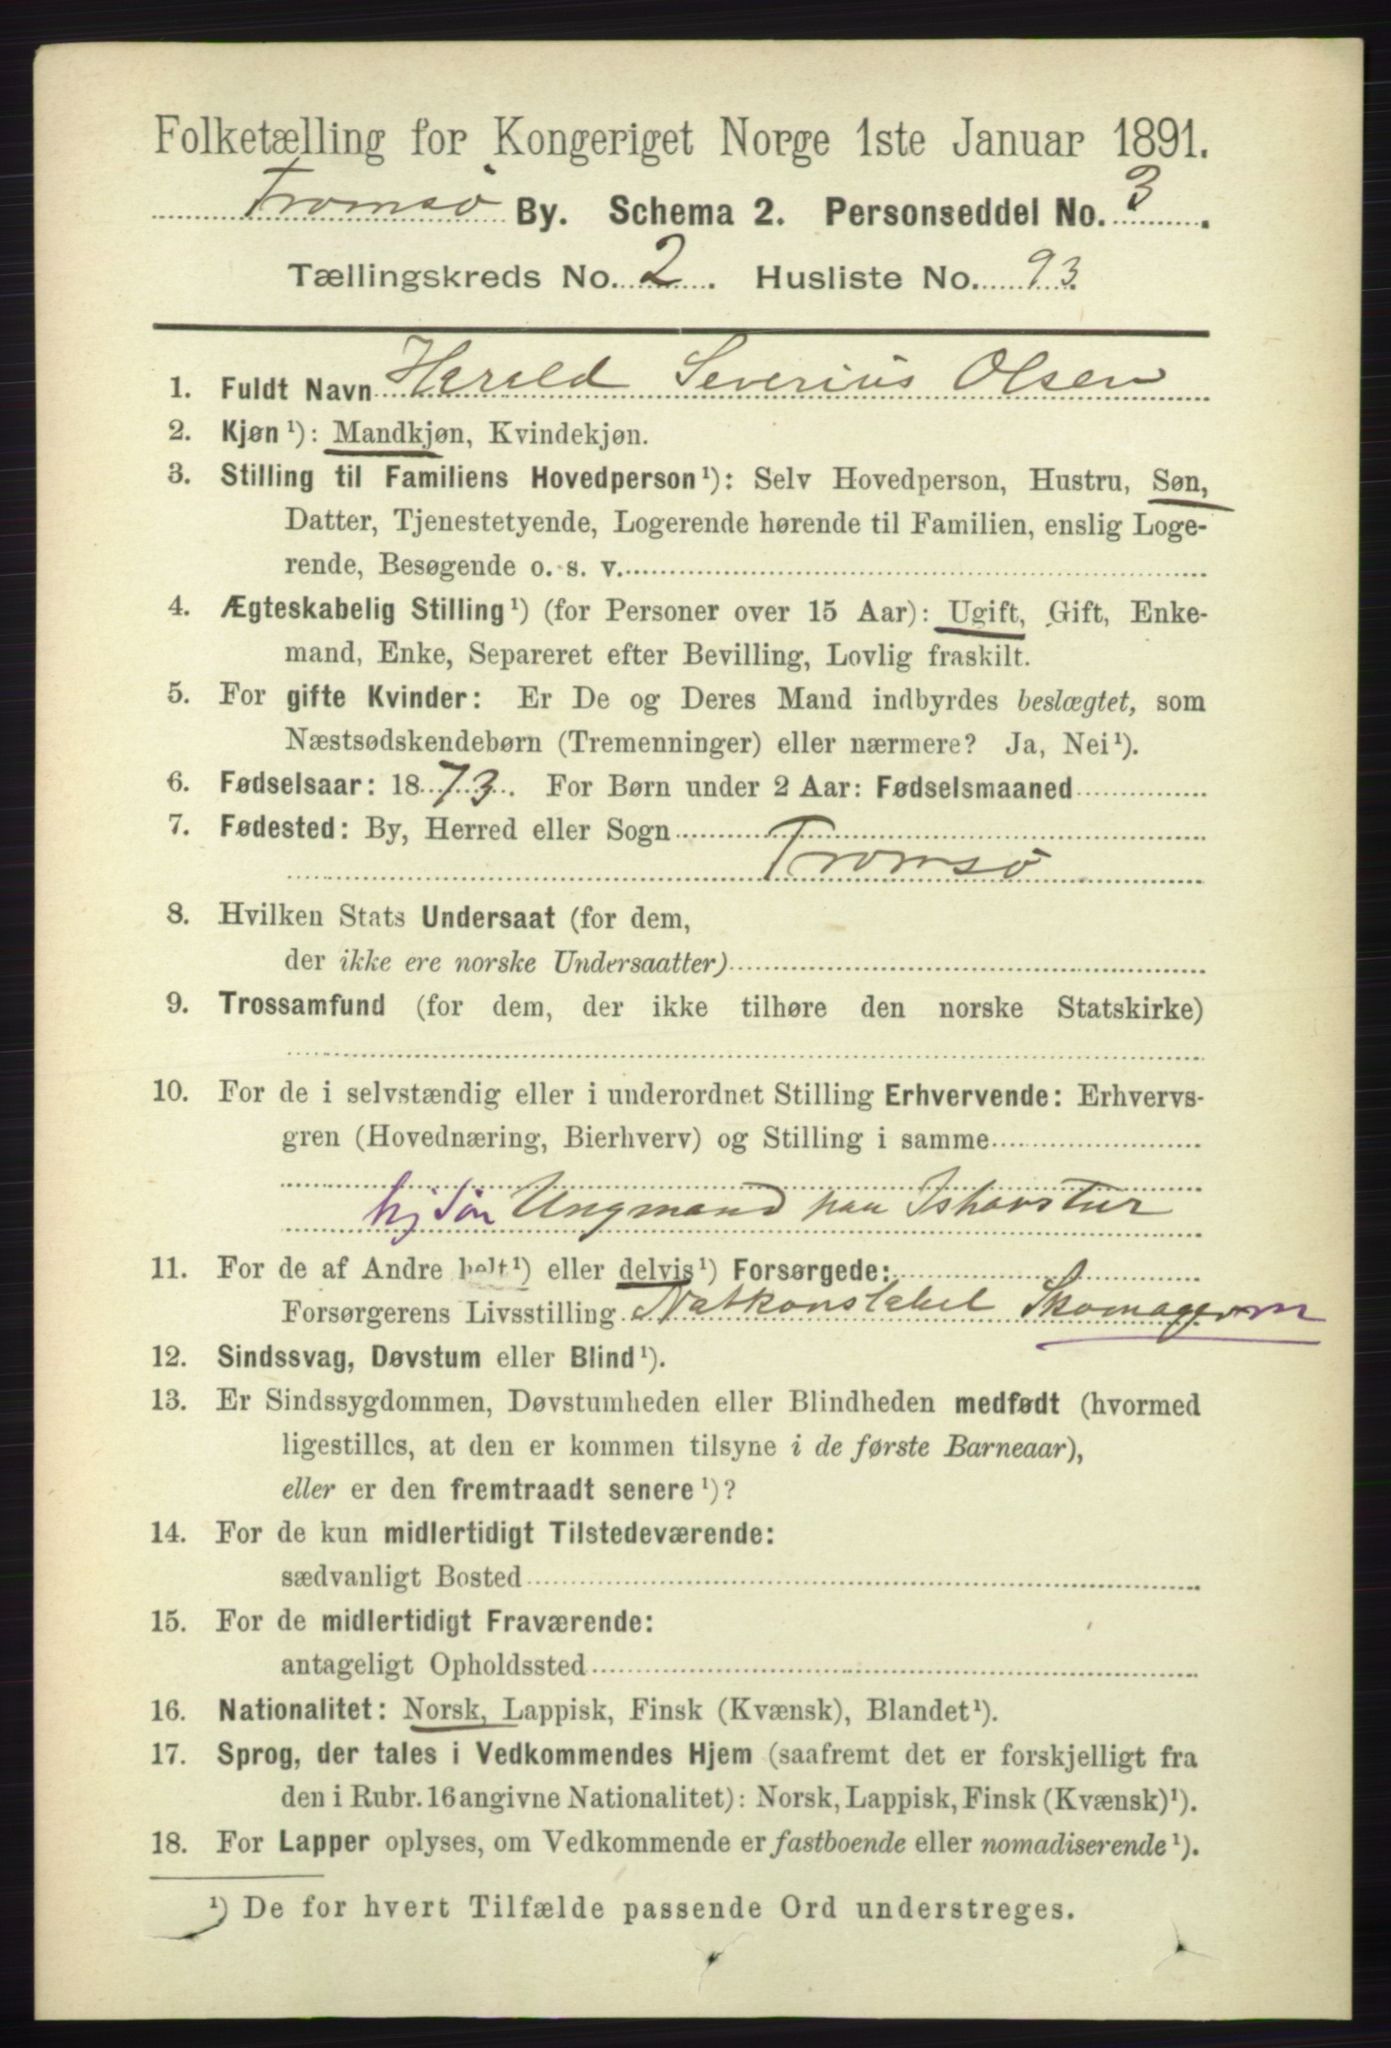 Folketælling for Kongeriget Norge 1ste Januar 1891.
Tromsø By. Schema 2. Personseddel No. 3.
Tællingskreds No. 2. Husliste No. 93.
1. Fuldt Navn Harald Severius Olsen
2. Kjøn¹): Mandkjøn, Kvindekjøn.
3. Stilling til Familiens Hovedperson¹): Selv Hovedperson, Hustru, Søn,
Datter, Tjenestetyende, Logerende hørende til Familien, enslig Loge-
rende, Besøgende o. s. v.
4. Ægteskabelig Stilling¹) (for Personer over 15 Aar): Ugift, Gift, Enke-
mand, Enke, Separeret efter Bevilling, Lovlig fraskilt.
5. For gifte Kvinder: Er De og Deres Mand indbyrdes beslægtet, som
Næstsødskendebørn (Tremenninger) eller nærmere? Ja, Nei¹).
6. Fødselsaar: 1873. For Børn under 2 Aar: Fødselsmaaned
7. Fødested: By, Herred eller Sogn
Tromsø
8. Hvilken Stats Undersaat (for dem,
der ikke ere norske Undersaatter)
9. Trossamfund (for dem, der ikke tilhøre den norske Statskirke)
10. For de i selvstændig eller i underordnet Stilling Erhvervende: Erhvervs-
gren (Hovednæring, Bierhverv) og Stilling i samme
Ungmand paa Ishavstur
11. For de af Andre helt¹) eller delvis¹) Forsørgede:
Forsørgerens Livsstilling Natkonstabel Skomagerm
12. Sindssvag, Døvstum eller Blind¹).
13. Er Sindssygdommen, Døvstumheden eller Blindheden medfødt (hvormed
ligestilles, at den er kommen tilsyne i de første Barneaar),
eller er den fremtraadt senere¹)?
14. For de kun midlertidigt Tilstedeværende:
sædvanligt Bosted
15. For de midlertidigt Fraværende:
antageligt Opholdssted
16. Nationalitet: Norsk, Lappisk, Finsk (Kvænsk), Blandet¹).
17. Sprog, der tales i Vedkommendes Hjem (saafremt det er forskjelligt fra
den i Rubr. 16 angivne Nationalitet): Norsk, Lappisk, Finsk (Kvænsk)¹).
18. For Lapper oplyses, om Vedkommende er fastboende eller nomadiserende¹).
¹) De for hvert Tilfælde passende Ord understreges.